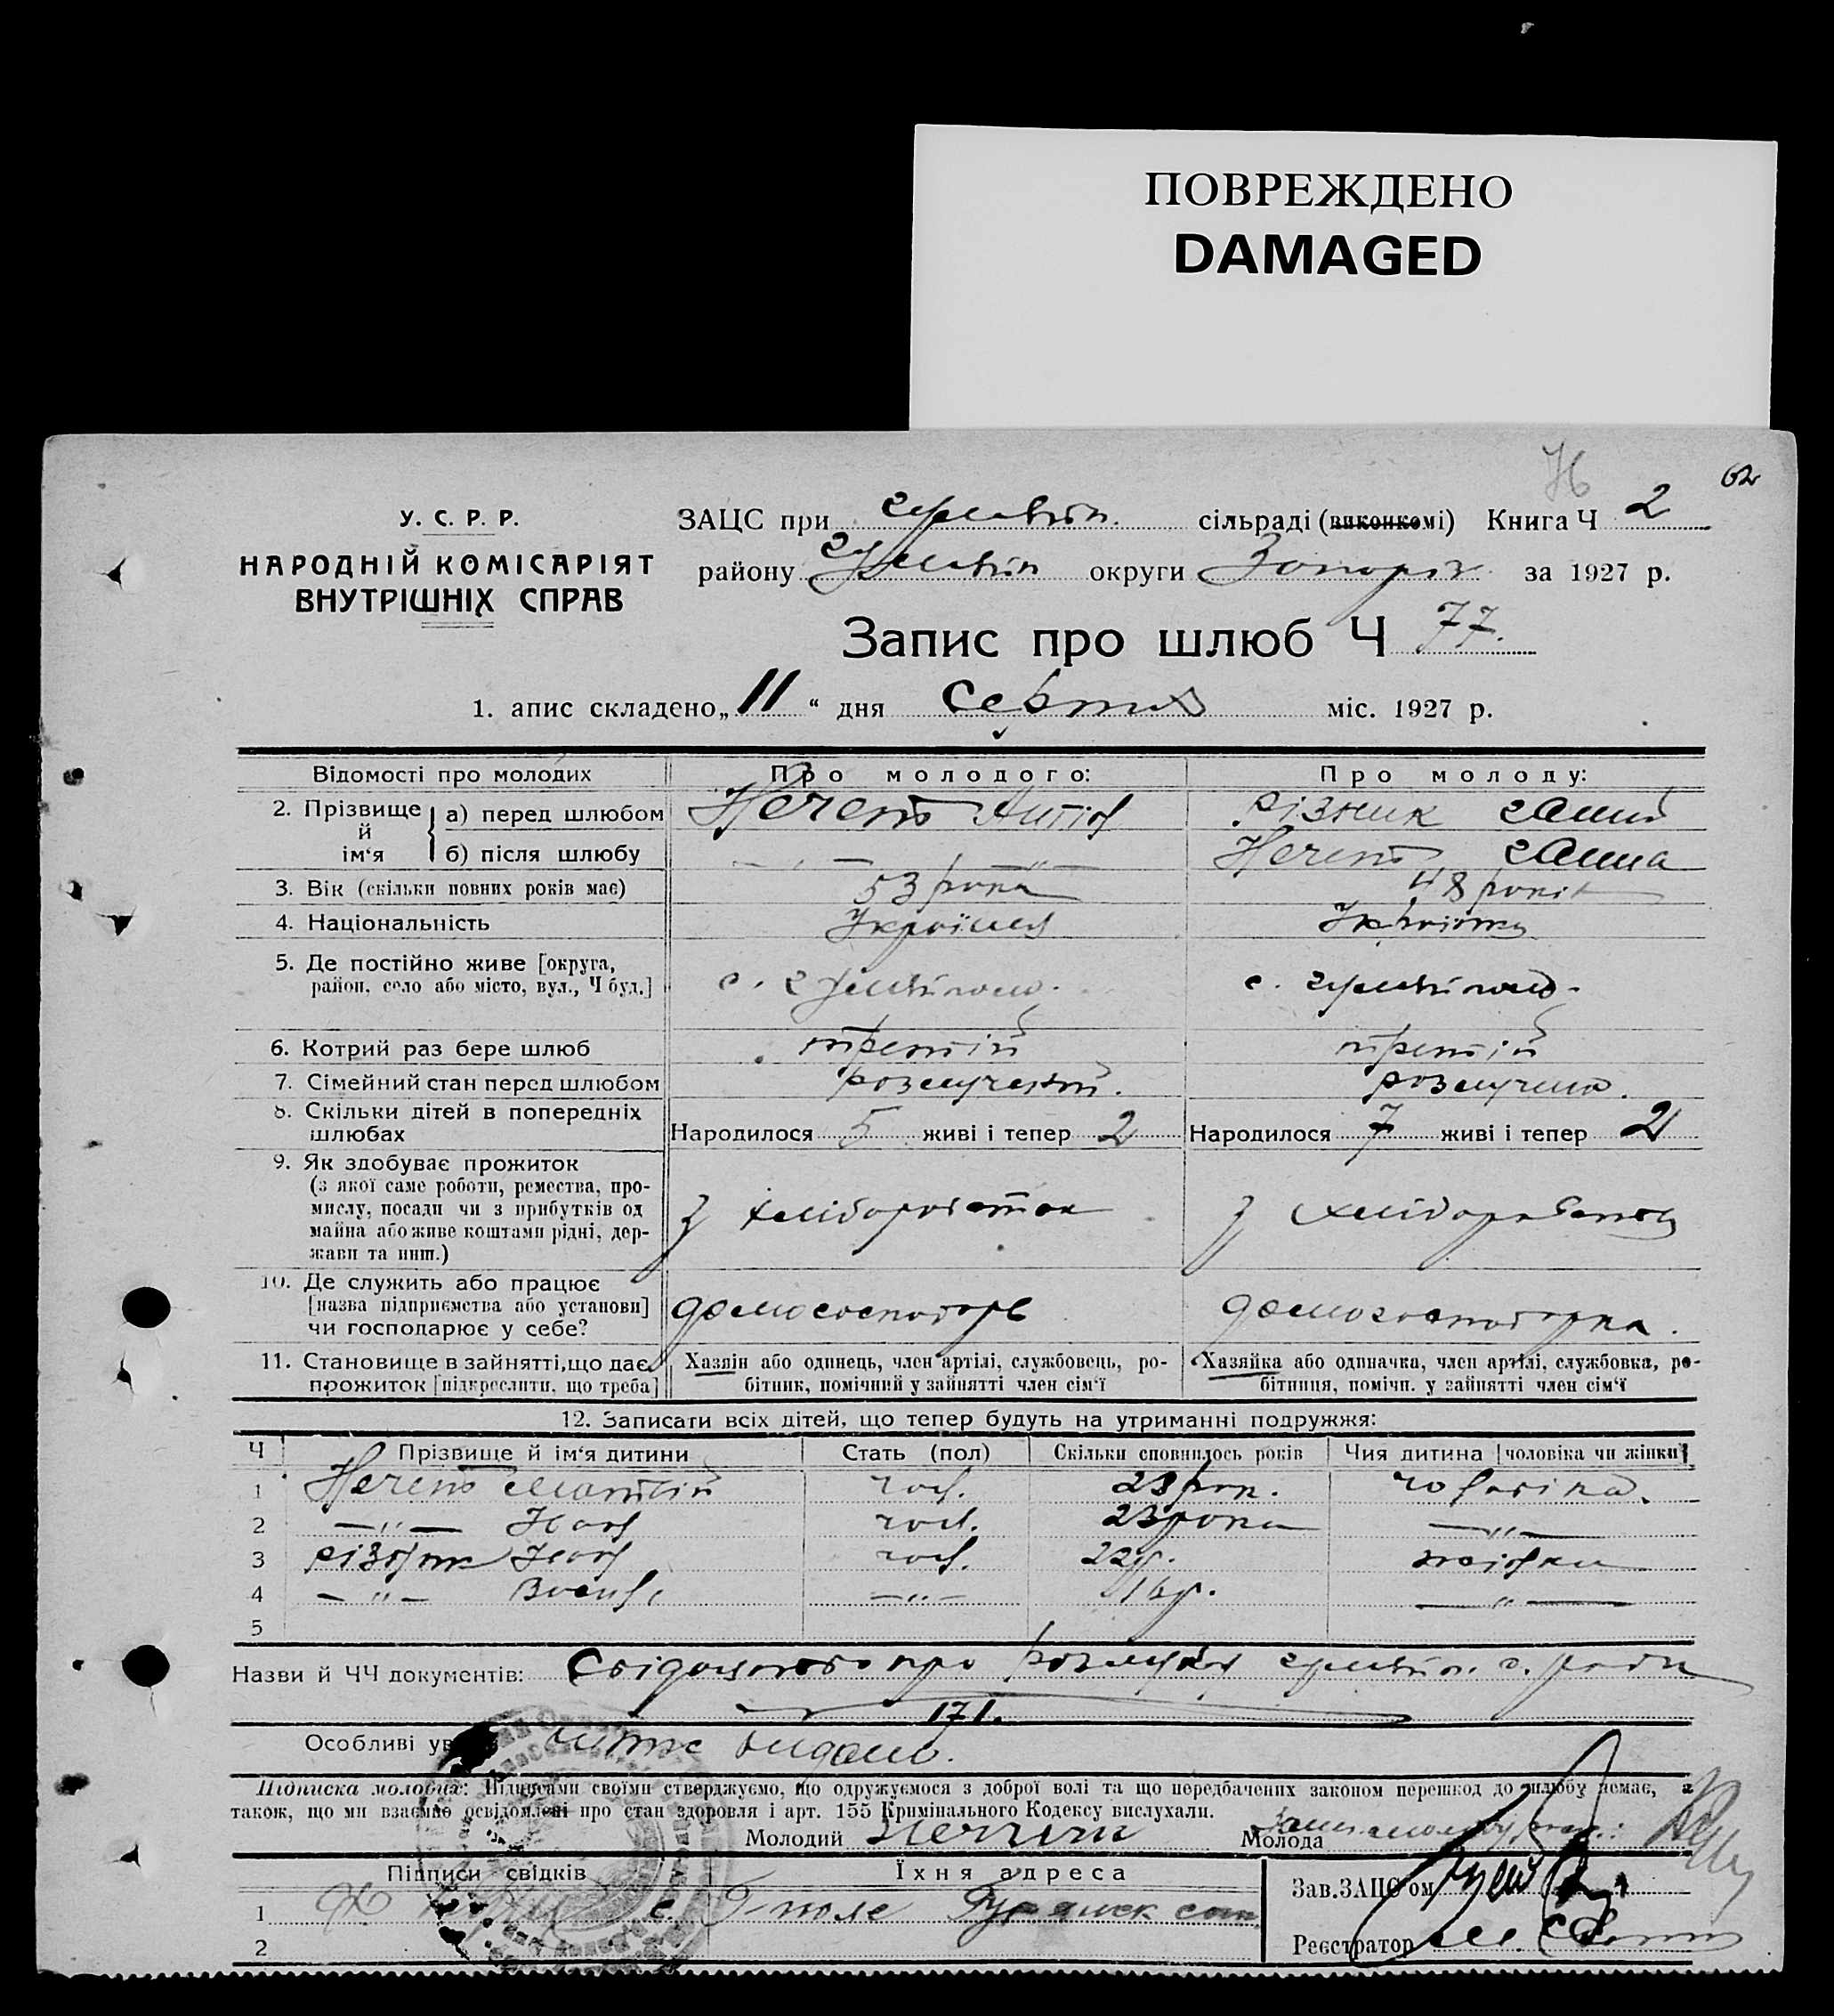 ПОВРЕЖДЕНО
DAMAGED
62
Н
У. С. Р. Р.
НАРОДНІЙ КОМІСАРІЯТ
ВНУТРІШНІХ СПРАВ
ЗАЦС при сільраді (виконкомі) Книга Ч 2
району округи Запоріз за 1927 р.
Запис про шлюб Ч 77.
1. апис складено „11“ дня серпня міс. 1927 р.
Відомості про молодих Про молодого: Про молоду:
2. Прізвище й ім‘я
а) перед шлюбом Різник Ганна
б) після шлюбу —„— —„— Ганна
3. Вік (скільки повних років має) 53 рока 48 років
4. Національність Українец Українка
5. Де постійно живе [округа,
район, село або місто, вул., Ч буд.] с. с.
6. Котрий раз бере шлюб третій третій
7. Сімейний стан перед шлюбом розлучений. розлучена.
8. Скільки дітей в попередніх
шлюбах Народилося 5 живі і тепер 2 Народилося 7 живі і тепер 2
9. Як здобуває прожиток
(з якої саме роботи, ремества, про-
мислу, посади чи з прибутків од
майна або живе коштами рідні, дер-
жави та инш.) з хліборобства з хліборобства
10. Де служить або працює
[назва підприємства або установи]
чи господарює у себе? домогосподарь домогосподарка.
11. Становище в зайнятті, що дає
прожиток [підкреслити, що треба]
Хазяїн або одинець, член артілі, службовець, ро-
бітник, помічний у зайнятті член сім‘ї
Хазяйка або одиначка, член артілі, службовка, ро-
бітниця, помічн. у зайнятті член сім‘ї
12. Записати всіх дітей, що тепер будуть на утриманні подружжя:
Ч Прізвище й ім‘я дитини Стать (пол) Скільки сповнилось років Чия дитина [чоловіка чи жінки]
1 Матвій чол. 23 рок. чоловіка.
2 —„— Іван чол. 23 рока —„—
3 Різник Іван чол. 22 р. жінки
4 —„— Васил. —„— 16 р. —„—
5
Назви й ЧЧ документів: Свідоцтво про розлуку с. ради
171.
Особливі ува видано.
Підписка молодих: Підписами своїми стверджуємо, що одружуємося з доброї волі та що передбачених законом перешкод до шлюбу немає, а
також, що ми взаємно освідомлені про стан здоровля і арт. 155 Кримінального Кодексу вислухали.
Молодий Молода
Підписи свідків Їхня адреса
Зав. ЗАЦС‘ом
1 с. Г-поле
Реєстратор
2